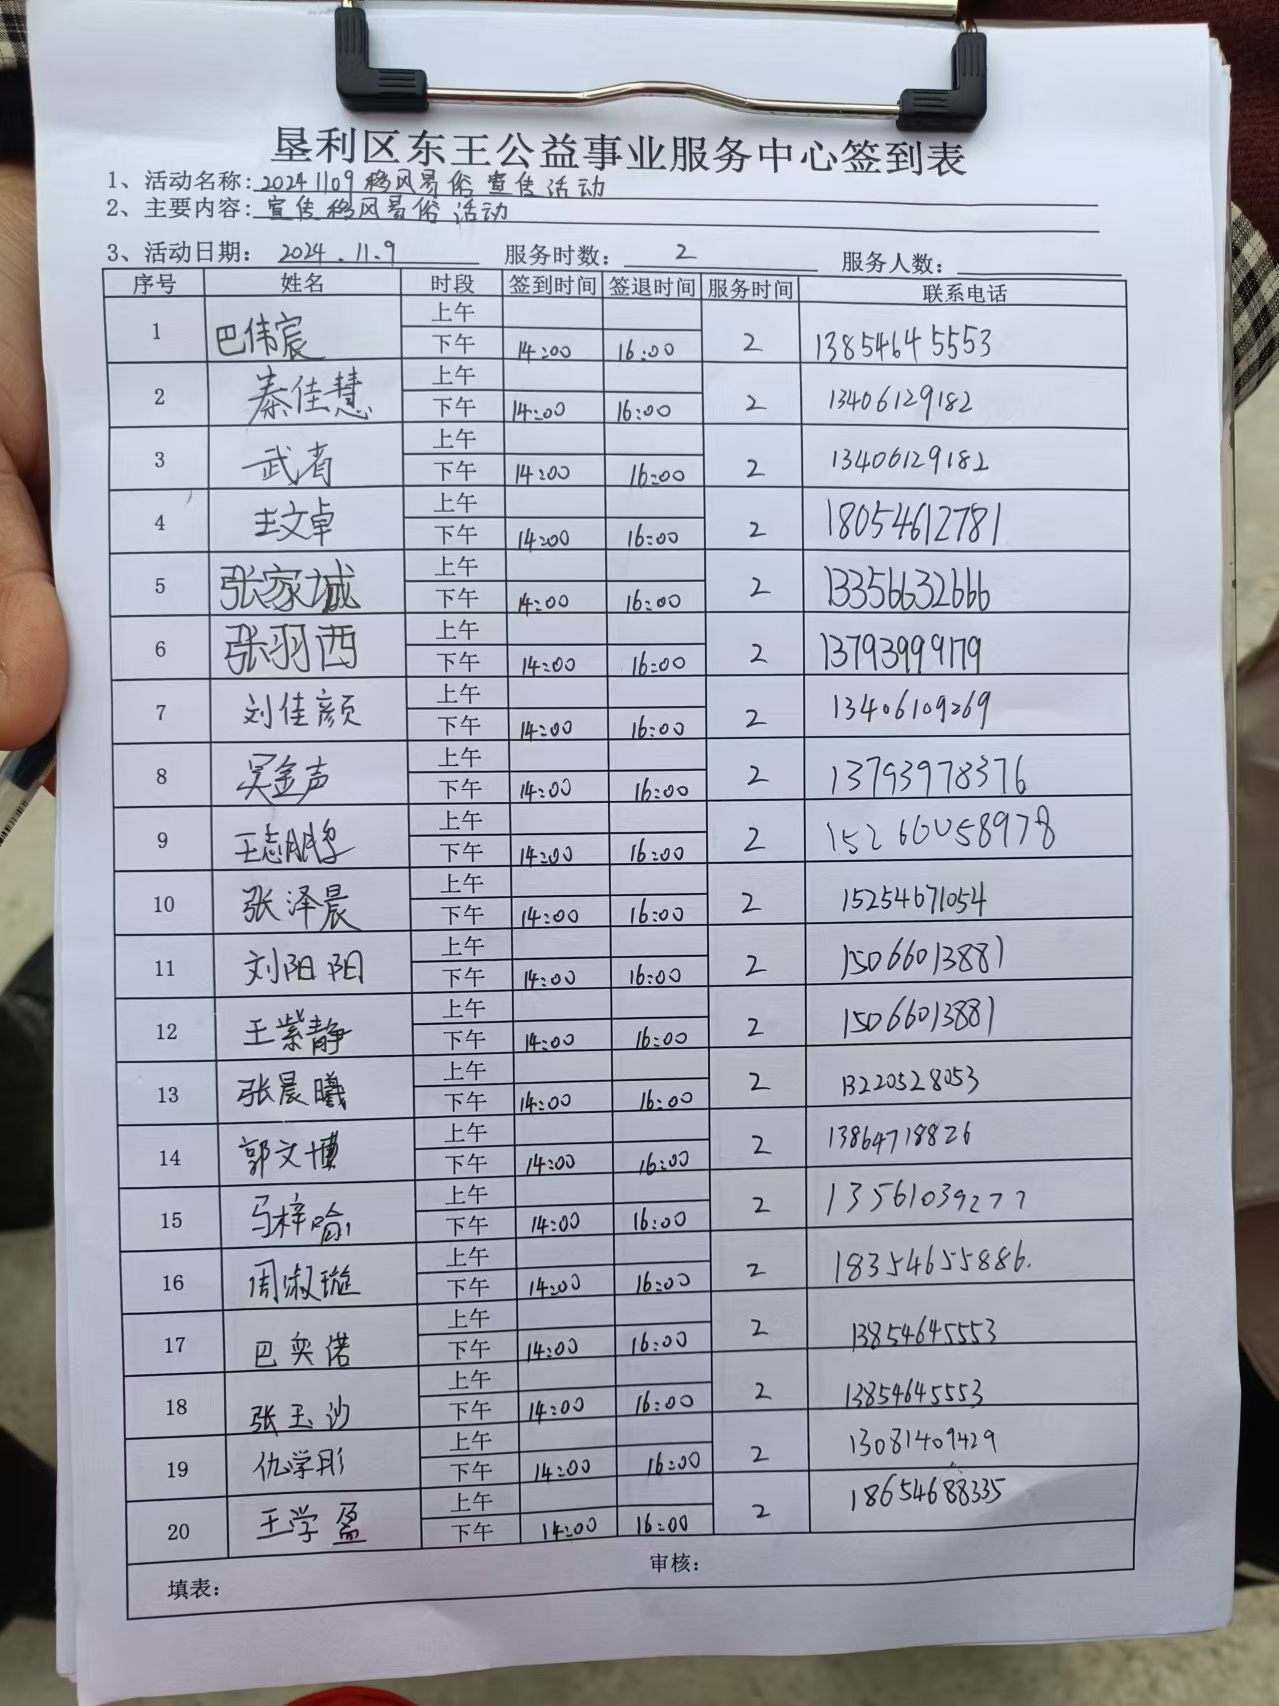 垦利区东王公益事业服务中心签到表
1、活动名称:20241109移风易俗宣传活动
2、主要内容:宣传移风易俗活动
3、活动日期: 2024.11.9 服务时数: 2 服务人数:
序号 姓名 时段 签到时间 签退时间 服务时间 联系电话
1 巴伟宸 上午 下午 14:00 16:00 2 13854645553
2 秦佳慧 上午 下午 14:00 16:00 2 13406129182
3 武者 上午 下午 14:00 16:00 2 13406129182
4 王文卓 上午 下午 14:00 16:00 2 18054612781
5 张家城 上午 下午 14:00 16:00 2 13356632666
6 张羽西 上午 下午 14:00 16:00 2 13793999179
7 刘佳颜 上午 下午 14:00 16:00 2 13406109269
8 吴金声 上午 下午 14:00 16:00 2 13793978376
9 上午 下午 14:00 16:00 2 15266058978
10 张泽晨 上午 下午 14:00 16:00 2 15254671054
11 刘阳阳 上午 下午 14:00 16:00 2 15066013881
12 王紫静 上午 下午 14:00 16:00 2 15066013881
13 张晨曦 上午 下午 14:00 16:00 2 13220528053
14 郭文博 上午 下午 14:00 16:00 2 13864718826
15 马梓喻 上午 下午 14:00 16:00 2 13561039277
16 周淑璇 上午 下午 14:00 16:00 2 18354655886.
17 巴奕诺 上午 下午 14:00 16:00 2 13854645553
18 张玉沙 上午 下午 14:00 16:00 2 13854645553
19 仇学彤 上午 下午 14:00 16:00 2 13081409429
20 王学盈 上午 下午 14:00 16:00 2 18654688335
填表: 审核: